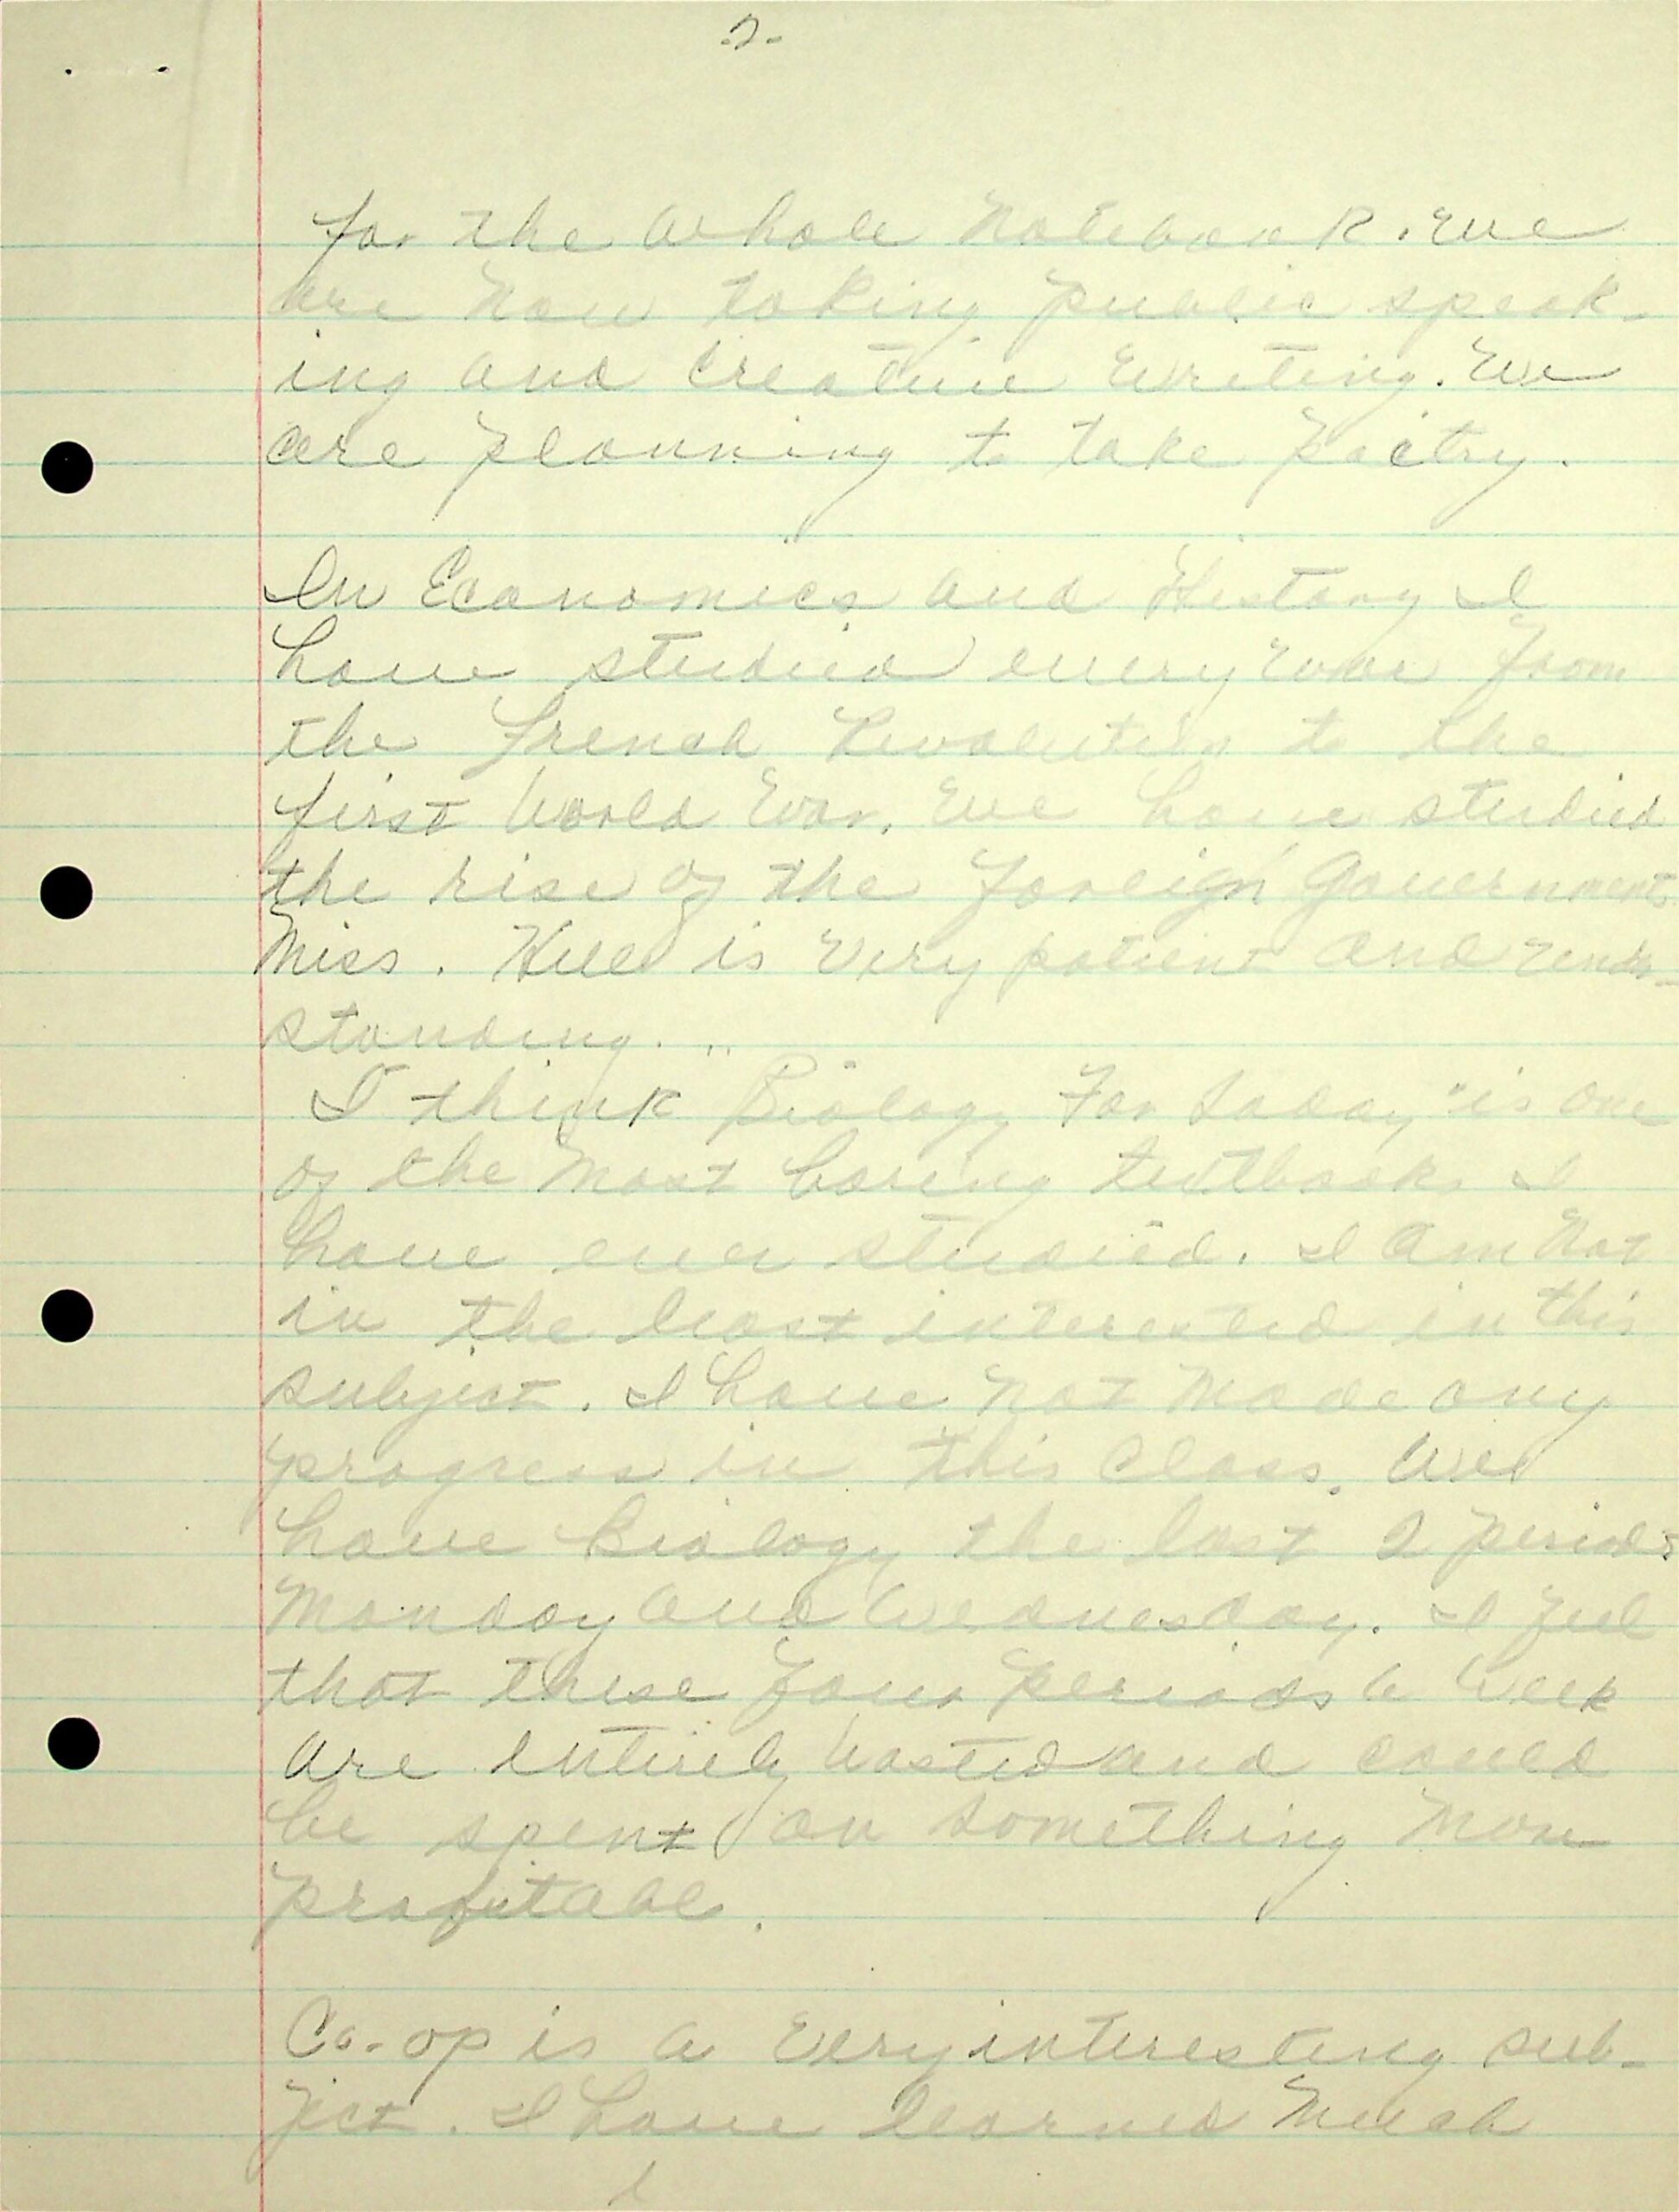 -2-
for the whole notebook. We
are now taking public speak-
ing and creative writing. We
are planning to take poetry.
In Economics and History I
have studied every war from
the French Revolution to the
first World War. We have studied
the rise of the Foreign Governments
Miss. Hill is very patient and under-
standing.
I think "Biology For Today" is one
of the most boring textbooks I
have ever studied. I am not
in the least interested in this
subject. I have not made any
progress in this class. We
have Biology the last 2 periods
Monday and Wednesday. I feel
that these four periods a week
are entirely wasted and could
be spent on something more
profitable.
Co-op is a very interesting sub-
ject. I have learned much